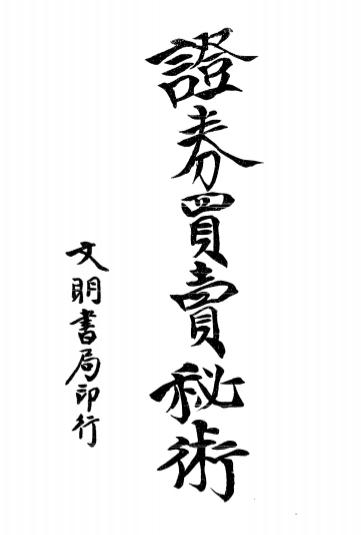 證券買賣秘術
文明書局印行